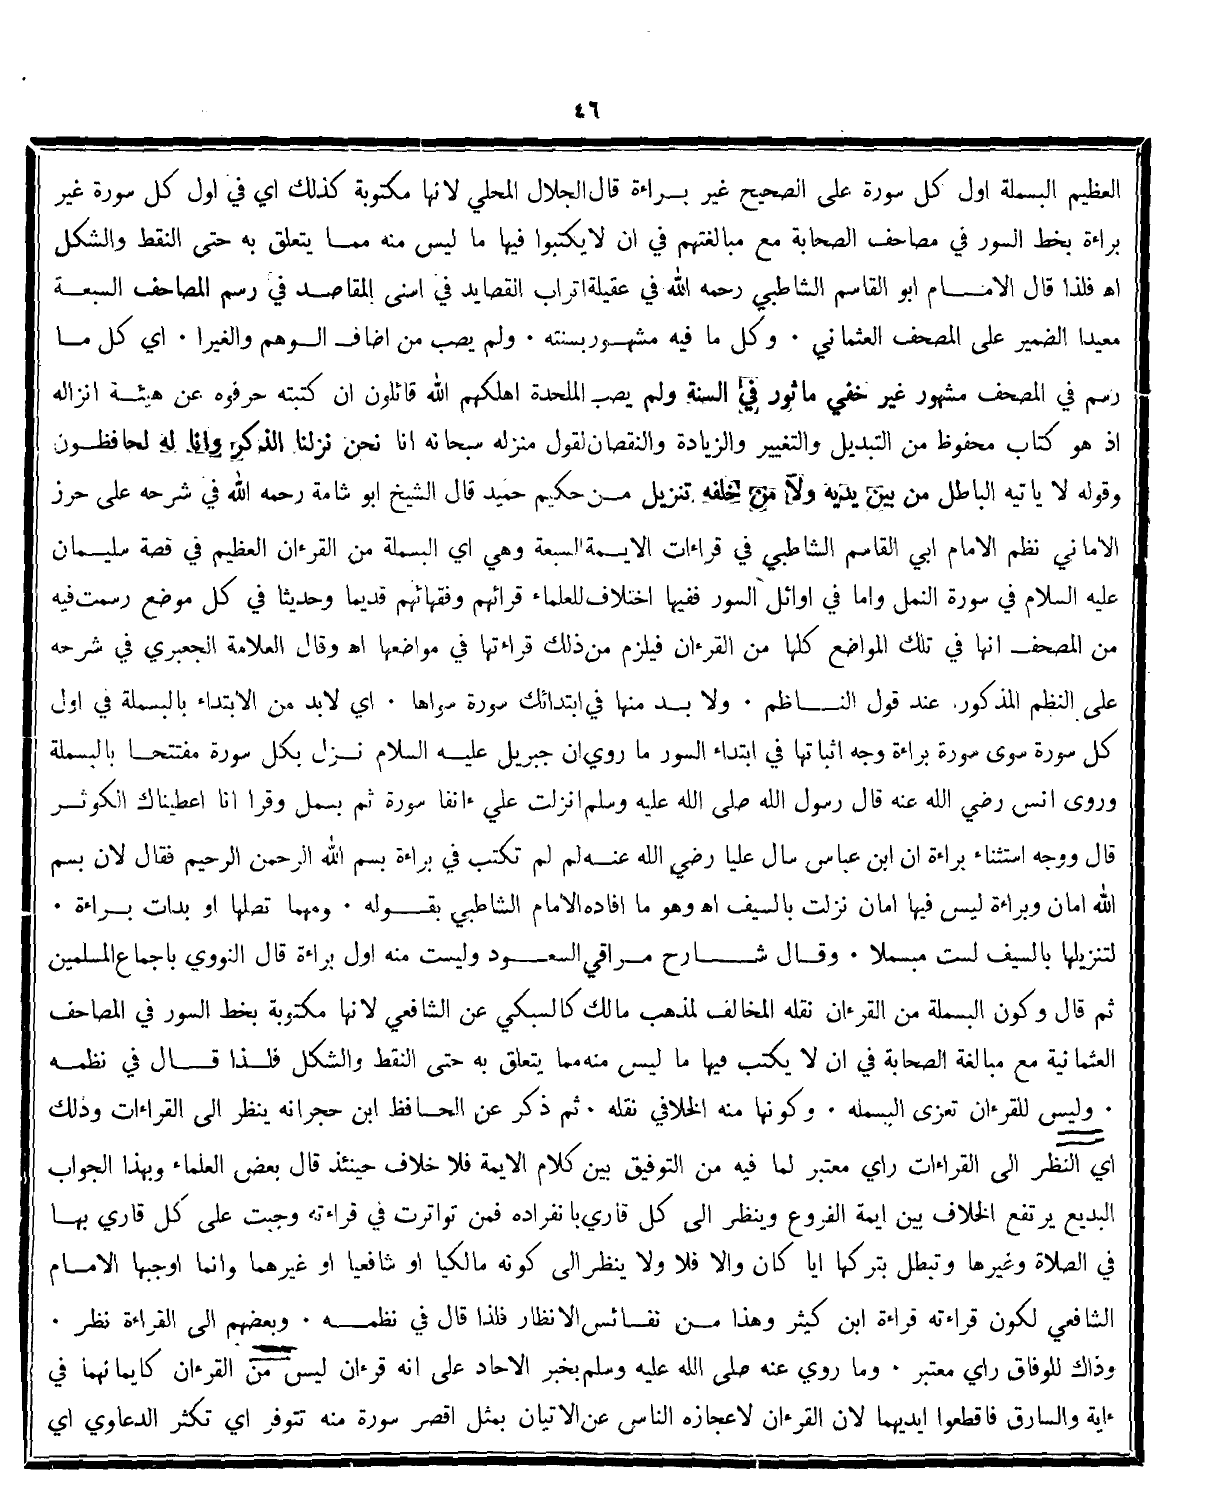 ٤٦
العظيم البسملة اول كل سورة على الصحيح غير براءة قال الجلال المحلي لانها مكتوبة كذلك اي في اول كل سورة غير
براءة بخط السور في مصاحف الصحابة مع مبالغتهم في ان لا يكتبوا فيها ما ليس منه مما يتعلق به حتى النقط والشكل
اه فلذا قال الامام ابو القاسم الشاطبي رحمه الله في عقيلة اتراب القصايد في اسنى المقاصد في رسم المصاحف السبعة
معيدا الضمير على المصحف العثماني ٠ وكل ما فيه مشهور بسنته ٠ ولم يصب من اضاف الوهم والغيرا ٠ اي كل ما
رسم في المصحف مشهور غير خفي ماثور في السنة ولم يصب الملحدة اهلكهم الله قائلون ان كتبته حرفوه عن هيئة انزاله
اذ هو كتاب محفوظ من التبديل والتغيير والزيادة والنقصان لقول منزله سبحانه انا نحن نزلنا الذكر وانا له لحافظون
وقوله لا ياتيه الباطل من بين يديه ولا من خلفه تنزيل من حكيم حميد قال الشيخ ابو شامة رحمه الله في شرحه على حرز
الاماني نظم الامام ابي القاسم الشاطبي في قراءات الايمة السبعة وهي اي البسملة من القرءان العظيم في قصة سليمان
عليه السلام في سورة النمل واما في اوائل السور ففيها اختلاف للعلماء قرائهم وفقهائهم قديما وحديثا في كل موضع رسمت فيه
من المصحف انها في تلك المواضع كلها من القرءان فيلزم من ذلك قراءتها في مواضعها اه وقال العلامة الجعبري في شرحه
على النظم المذكور عند قول الناظم ٠ ولا بد منها في ابتدائك سورة سواها ٠ اي لابد من الابتداء بالبسملة في اول
كل سورة سوى سورة براءة وجه اثباتها في ابتداء السور ما روي ان جبريل عليه السلام نزل بكل سورة مفتتحا بالبسملة
وروى انس رضي الله عنه قال رسول الله صلى الله عليه وسلم انزلت علي ءانفا سورة ثم بسمل وقرا انا اعطيناك الكوثر
قال ووجه استثناء براءة ان ابن عباس سال عليا رضي الله عنه لم لم تكتب في براءة بسم الله الرحمن الرحيم فقال لان بسم
الله امان وبراءة ليس فيها امان نزلت بالسيف اه وهو ما افاده الامام الشاطبي بقوله ٠ ومهما تصلها او بدات براءة ٠
لتنزيلها بالسيف لست مبسملا ٠ وقال شارح مراقي السعود وليست منه اول براءة قال النووي باجماع المسلمين
ثم قال وكون البسملة من القرءان نقله المخالف لمذهب مالك كالسبكي عن الشافعي لانها مكتوبة بخط السور في المصاحف
العثمانية مع مبالغة الصحابة في ان لا يكتب فيها ما ليس منه مما يتعلق به حتى النقط والشكل فلذا قال في نظمه
٠ وليس للقرءان تعزى البسمله ٠ وكونها منه الخلافي نقله ٠ ثم ذكر عن الحافظ ابن حجر انه ينظر الى القراءات وذلك
اي النظر الى القراءات راي معتبر لما فيه من التوفيق بين كلام الايمة فلا خلاف حينئذ قال بعض العلماء وبهذا الجواب
البديع يرتفع الخلاف بين ايمة الفروع وينظر الى كل قاري بانفراده فمن تواترت في قراءته وجبت على كل قاري بها
في الصلاة وغيرها وتبطل بتركها ايا كان والا فلا ولا ينظر الى كونه مالكيا او شافعيا او غيرهما وانما اوجبها الامام
الشافعي لكون قراءته قراءة ابن كثير وهذا من نفائس الانظار فلذا قال في نظمه ٠ وبعضهم الى القراءة نظر ٠
وذاك للوفاق راي معتبر ٠ وما روي عنه صلى الله عليه وسلم بخبر الاحاد على انه قرءان ليس من القرءان كايمانهما في
ءاية والسارق فاقطعوا ايديهما لان القرءان لاعجازه الناس عن الاتيان بمثل اقصر سورة منه تتوفر اي تكثر الدعاوي اي